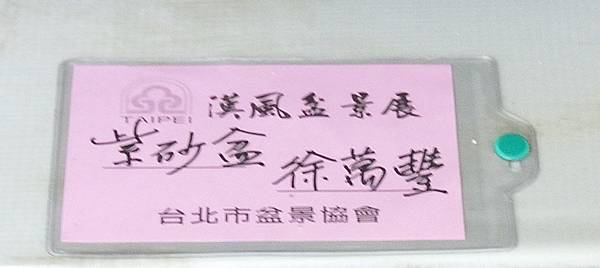 漢風盆景展
TAIPEI
紫砂盆
徐萬豐
台北市盆景協會